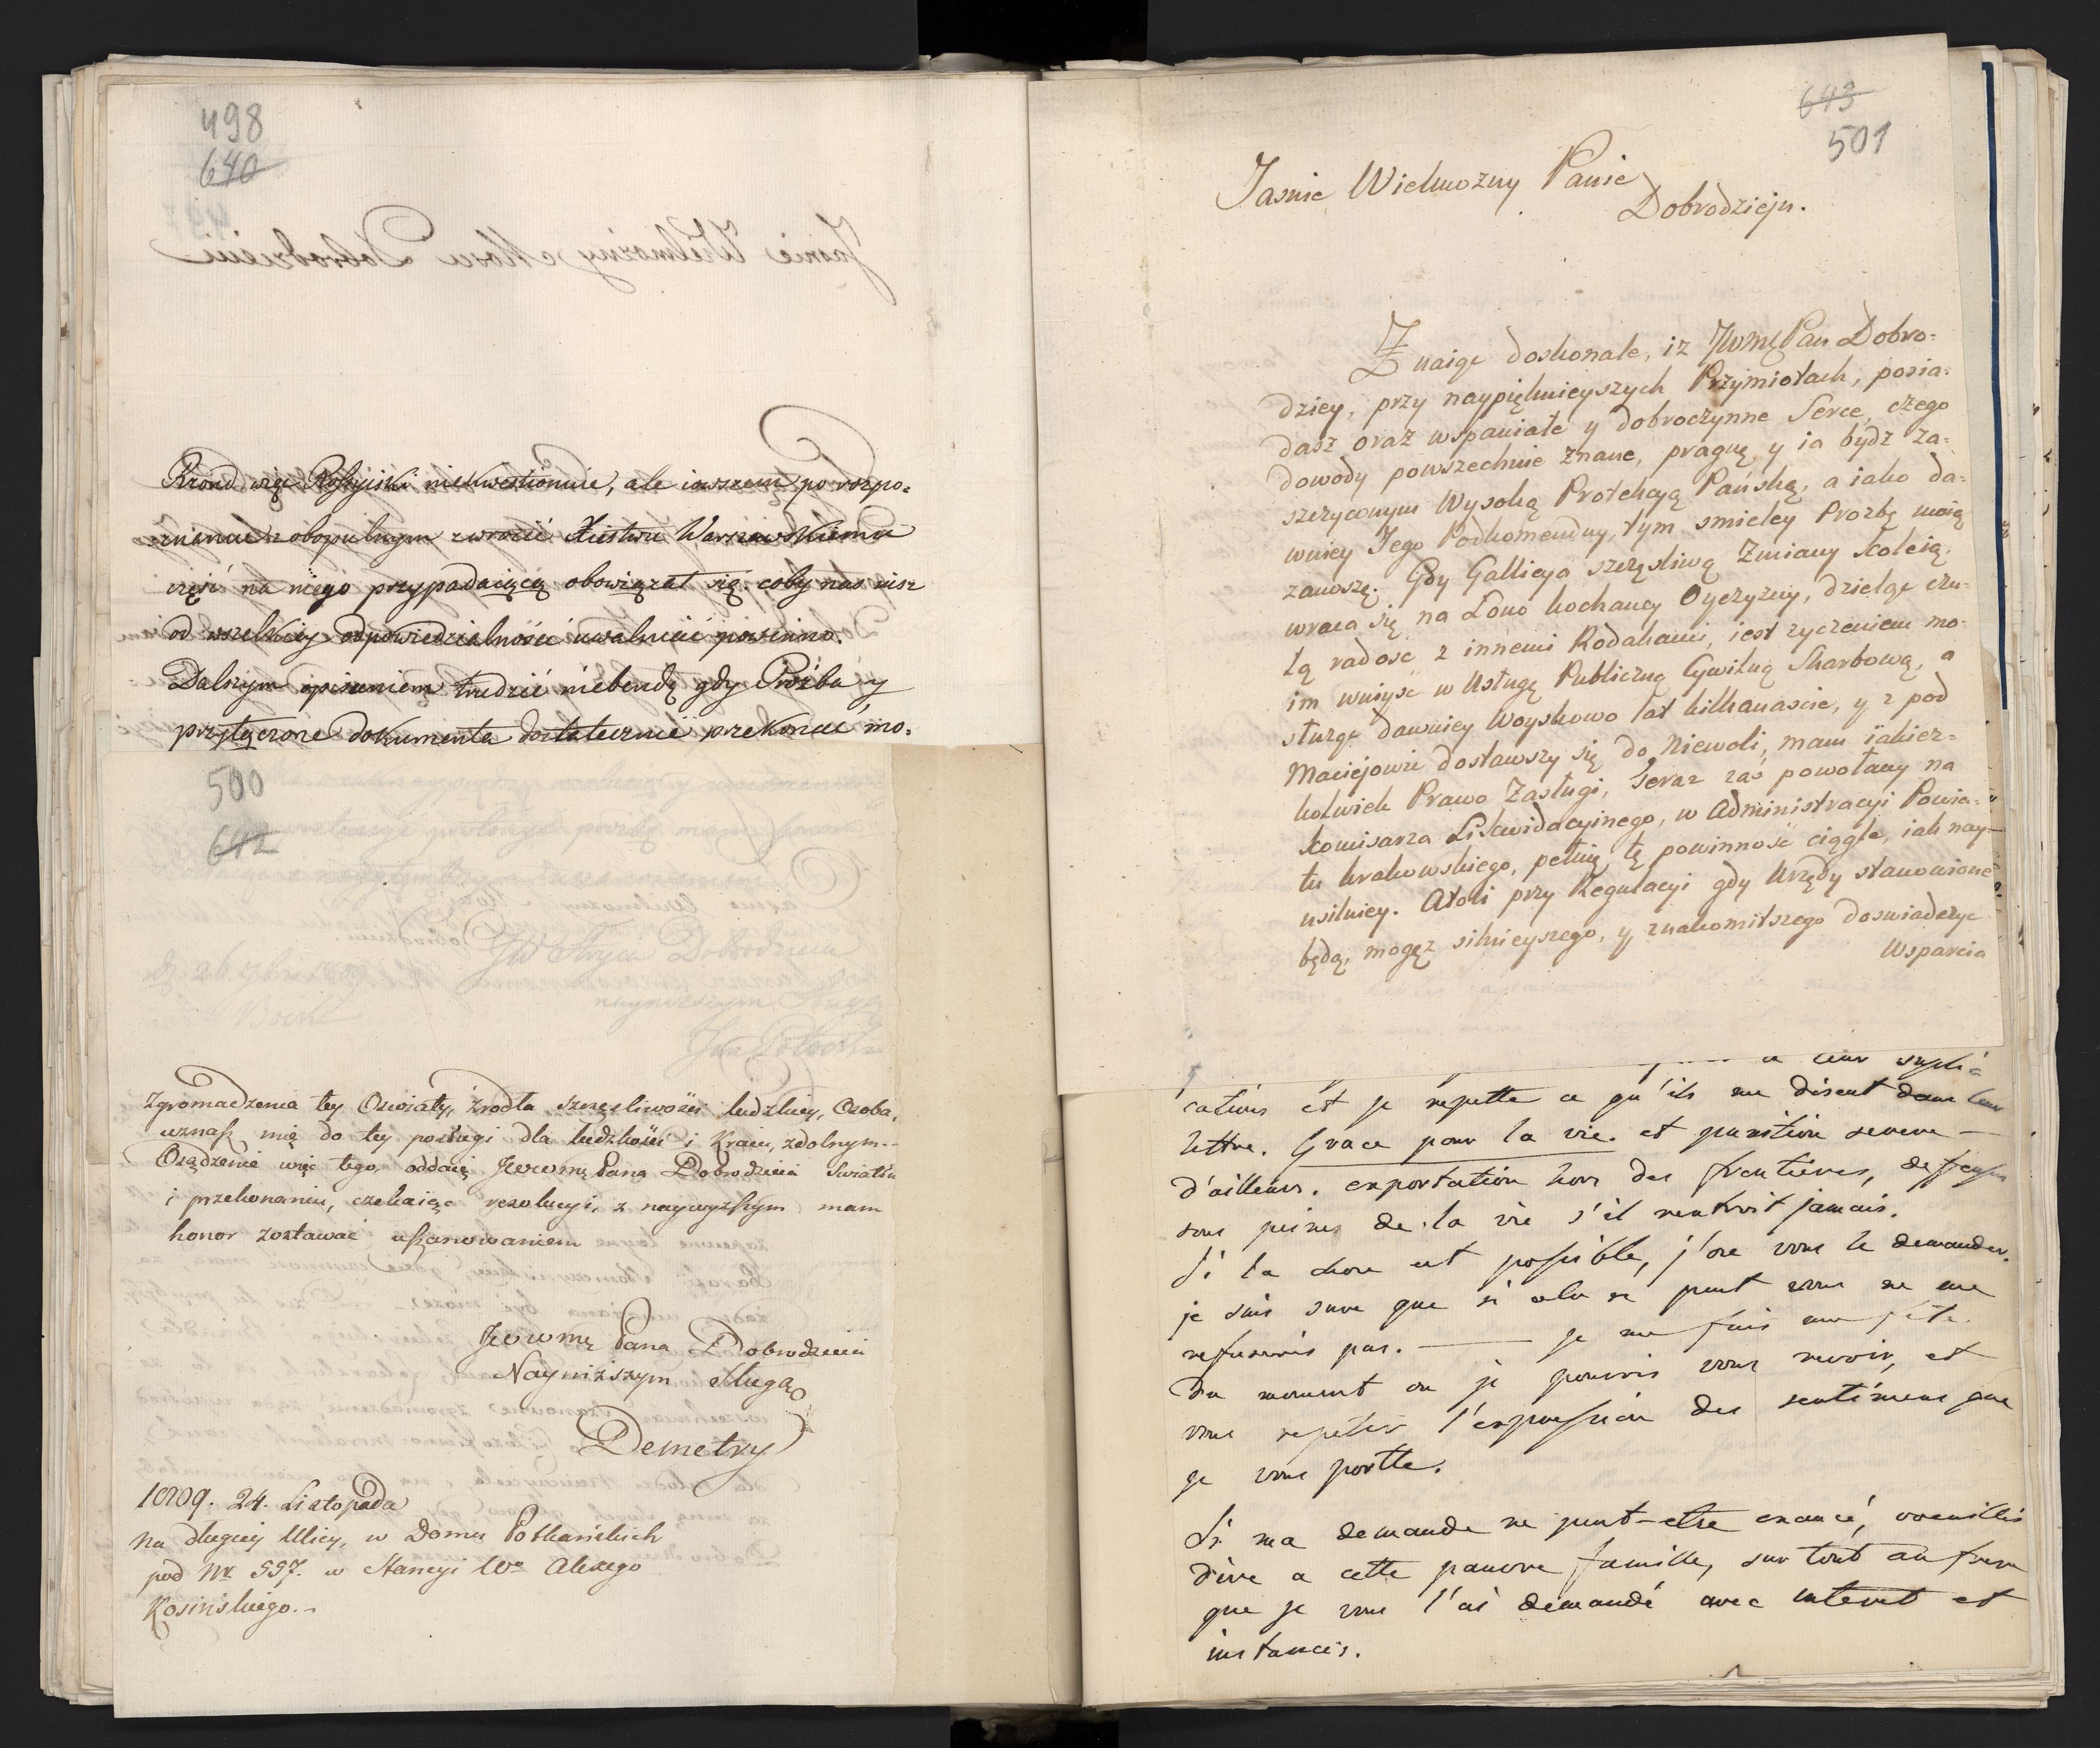 498
640
Rząnd więc Rossyiski niekwestionuie, ale iowszem po rozpo-
znaniu obopulnym zwrócić Xięstwu Warszawskiemu
część na niego przypadaiącą obowiązał się, coby nas nisz
od wszelkiey odpowiedzialności uwalniać powinno.
Dalszym opisaniem trudzić niebendę gdy Prożba y
przyłączone dokumenta dostatecznie przekonać mo-
500
642
Zgromadzenia tey Oswiaty, źrodła szczęsliwości ludzkiey, Osoba,
uznasz mię do tey posługi dla ludzkości i Kraiu, zdolnym.-
Osądzenie więc tego, oddaię JWWmę Pana Dobrodzieia Swiatłu
i przekonaniu, czekaiąc rezolucyi, z naywyzszym mam
honor zostawać uszanowaniem
JWWmę Pana Dobrodzieia
Nayniższym Sługą
Demetry
1809. 24. Listopada
na długiey Ulicy, w Domu Potkańskich
pod Nr. 557. w Stancyi We Alexego
Kosińskiego.-
643
501
Jasnie Wielmozny Panie
Dobrodzieju.
Znaiąc doskonale, iz JWWMę Pan Dobro-
dziey, przy naypięknieyszych Przymiotach, posia-
dasz oraz wspaniałe y dobroczynne Serce, czego
dowody powszechnie znane, pragnę y ia bydz za-
szczyconym Wysoką Protekcyą Pańską, a iako da-
wniey Jego Podkomendny, tym smieley Prozbę moią
zanoszę. Gdy Gallicya szczęsliwą Zmiany Koleią,
wraca się na Łono kochaney Oyczyzny, dzieląc czu-
łą radosc z innemi Rodakami, iest zyczeniem mo-
im wniyść w Usługę Publiczną Cywilną Skarbową, a
służąc dawniey Woyskowo lat kilkanascie, y z pod
Macieiowic dostawszy się do Niewoli, mam iakież-
kolwiek Prawo Zasługi, Teraz zaś powołany na
Komisarza Likwidacyinego, w Administracyi Powia-
tu krakowskiego, pełnię tę powinność ciągle, iak nay-
usilniey. Atoli przy Regulacyi gdy Urzędy stanowione
będą, mogąc silnieyszego, y znakomitszego doswiadczyc
Wsparcia
a leur suppli=
cations et je repette ce qu'ils me disent dans leur
lettre. Grace pour la vie. et punition severe —
d'ailleurs. exportation hors des frontières, deffense
sous peines de la vie s'il rentroit jamais.
Si la chose est possible, j'ose vous le demander.
je suis sure que si cela se peut vous ne me
refuserois pas. — je me fais une fête.
du moment ou je pourois vous revoir, et
vous repeter l'expression des sentimens que
je vous portte.
Si ma demande ne peut-etre exaucé, vveuillis
dire a cette pauvre famille, sur tout au frere
que je vous l'ai demandé avec interet et
instances.